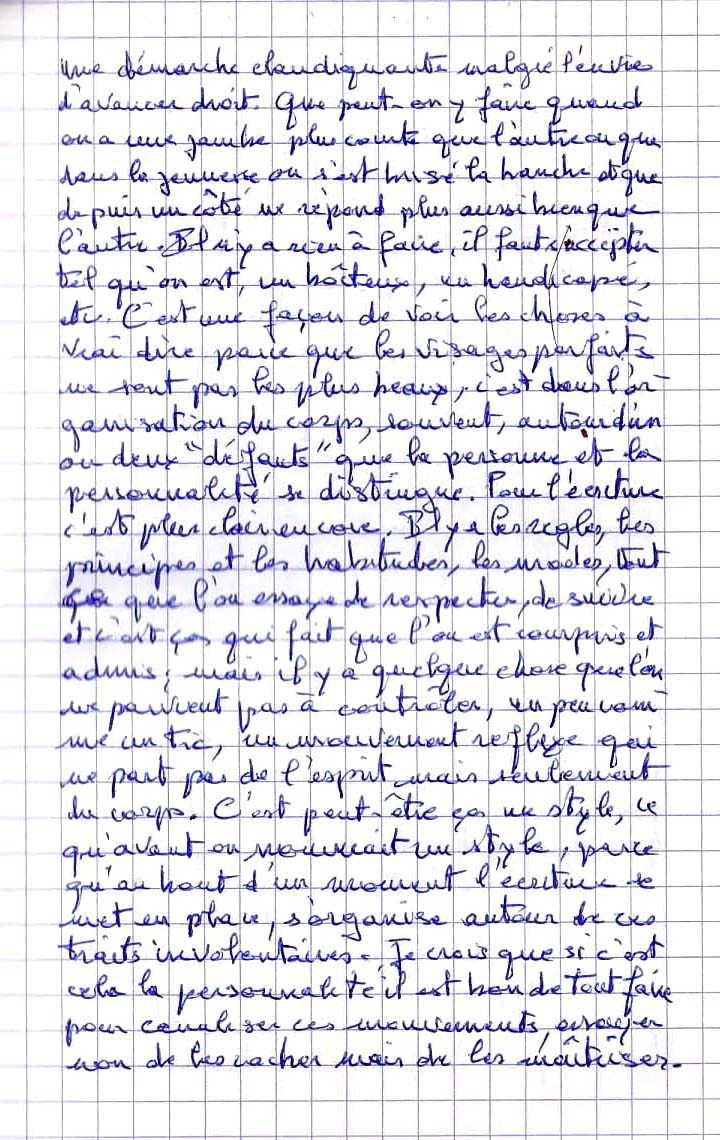 Une démarche claudiquante malgré l'envie
d'avancer droit. Que peut-on y faire quand
on a une jambe plus courte que l'autre ou que
dans la jeunesse on s'est brisé la hanche et que
depuis un côté ne répond plus aussi bien que
l'autre. Il n'y a rien à faire, il faut s'accepter
tel qu'on est, un boîteux, un handicapé,
etc. C'est une façon de voir les choses à
vrai dire parce que les visages parfaits
ne sont pas les plus beaux, c'est dans l'or-
ganisation du corps, souvent, autour d'un
ou deux "défauts" que la personne et la
personnalité se distingue. Pour l'écriture
c'est plus clair encore. Il y a les règles, les
principes et les habitudes, les modes, tout
ça que l'on essaye de respecter, de suivre
et c'est ça qui fait que l'on est compris et
admis ; mais il y a quelque chose que l'on
ne parvient pas à contrôler, un peu com-
me un tic, un mouvement reflexe qui
ne part pas de l'esprit mais seulement
du corps. C'est peut-être ça un style, ce
qu'avant on nommait un style, parce
qu'au bout d'un moment l'écriture se
met en place, s'organise autour de ces
traits involontaires. Je crois que si c'est
cela la personnalité il est bon de tout faire
pour canaliser ces mouvements, essayer
non de les cacher mais de les maîtriser.